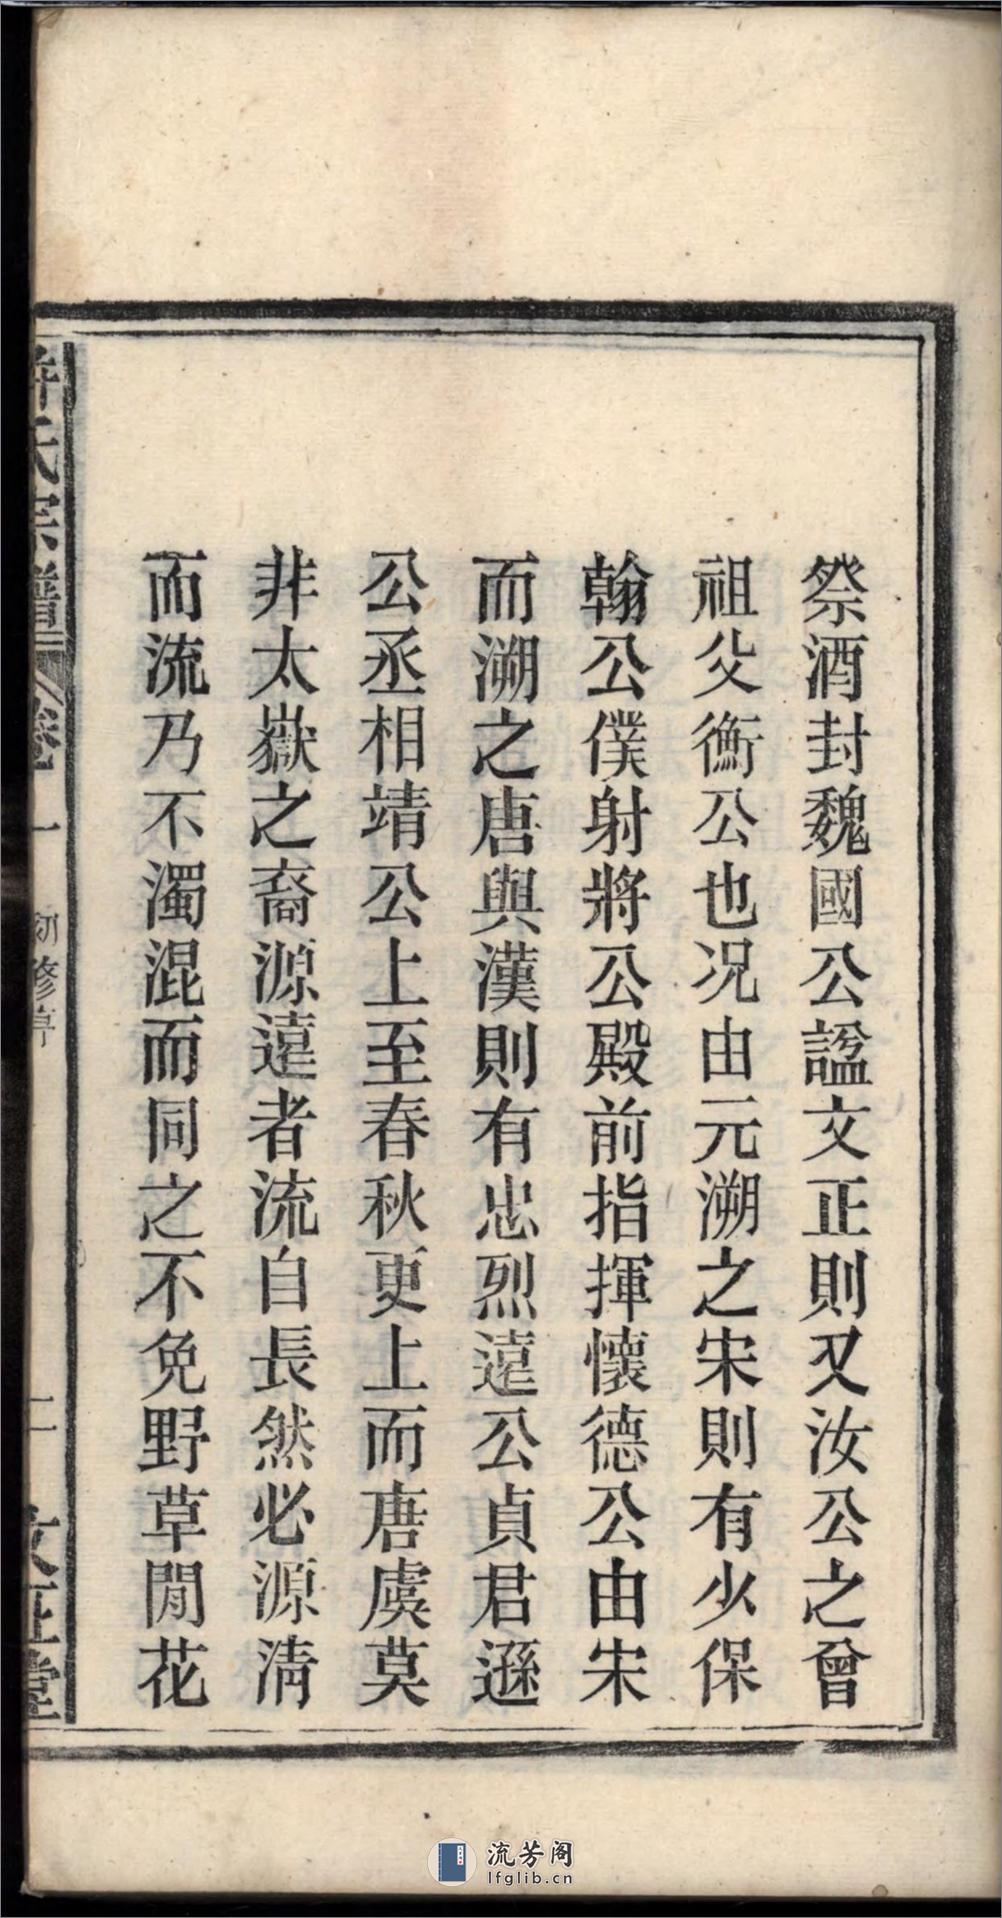 祭酒封魏國公諡文正則又汝公之曾
祖父衡公也况由元溯之宋則有少保
翰公僕射將公殿前指揮懷德公由宋
而溯之唐與漢則有忠烈遠公貞君遜
公丞相靖公上至春秋更上而唐虞莫
非太嶽之裔源遠者流自長然必源清
而流乃不濁混而同之不免野草閒花
氏宗譜 卷一 初修序 二 文正堂
流芳阁
lfglib.cn